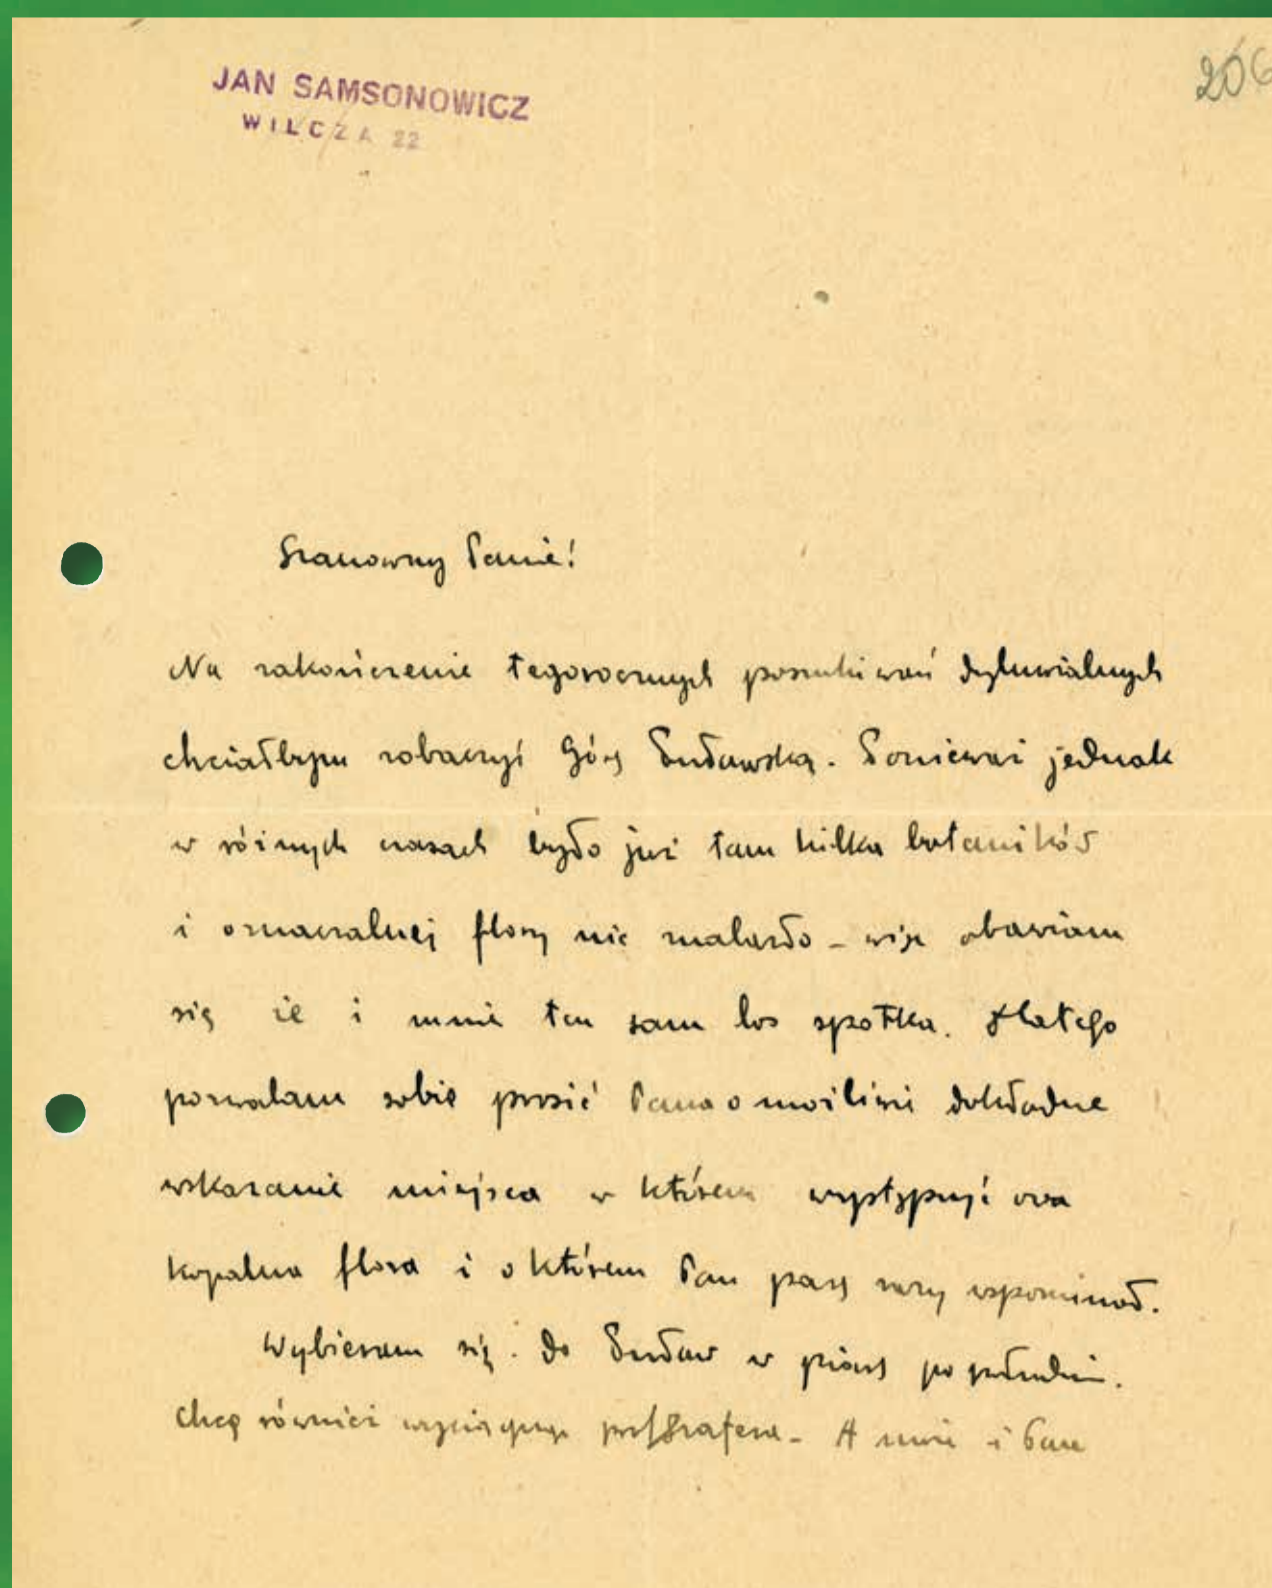 JAN SAMSONOWICZ
WILCZA 22
206
Szanowny Panie!
Na zakończenie tegorocznych poszukiwań dyluwialnych
chciałbym zobaczyć Górę Puławską. Ponieważ jednak
w różnych czasach było już tam kilka botaników
i oznaczalnej flory nie znalazło – więc obawiam
się że i mnie ten sam los spotka. Dlatego
pozwalam sobie prosić Pana o możliwie dokładne
wskazanie miejsca w którem występuje owa
kopalna flora i o którem Pan parę razy wspominał.
Wybieram się do Puław w piąt. po południu.
Chcę również wyciągnąć prof. Szafera – A może i Pan